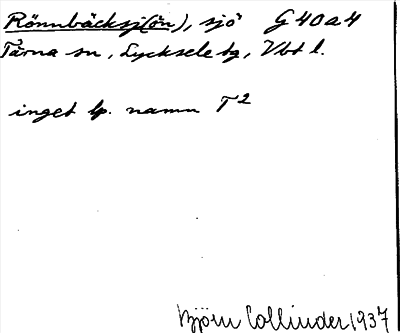 Rönnbäcksj(ön), sjö G 40 a 4
Tärna sn, Lycksele tg, Vbt l.
inget lp. namn T2
Björn Collinder 1937